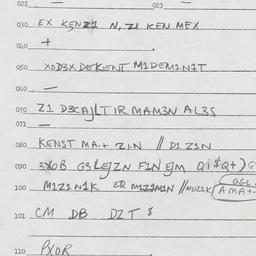 022 — 023 —
030 EX KENZ1 N, Z1 KEN MEX
040 +
050 XOD3X DEKENT M1DEM1N1T
060 —
070 Z1 D3CAJLT IR MAM3N AL3S
071 —
080 KENST MA.+ Z1N // D1 Z1N
090 3XOB G3 N F1N
100 M1Z1N1K EQ M1Z1M1N // MUZ1K
101 CM DB DZT $
110 PXOR